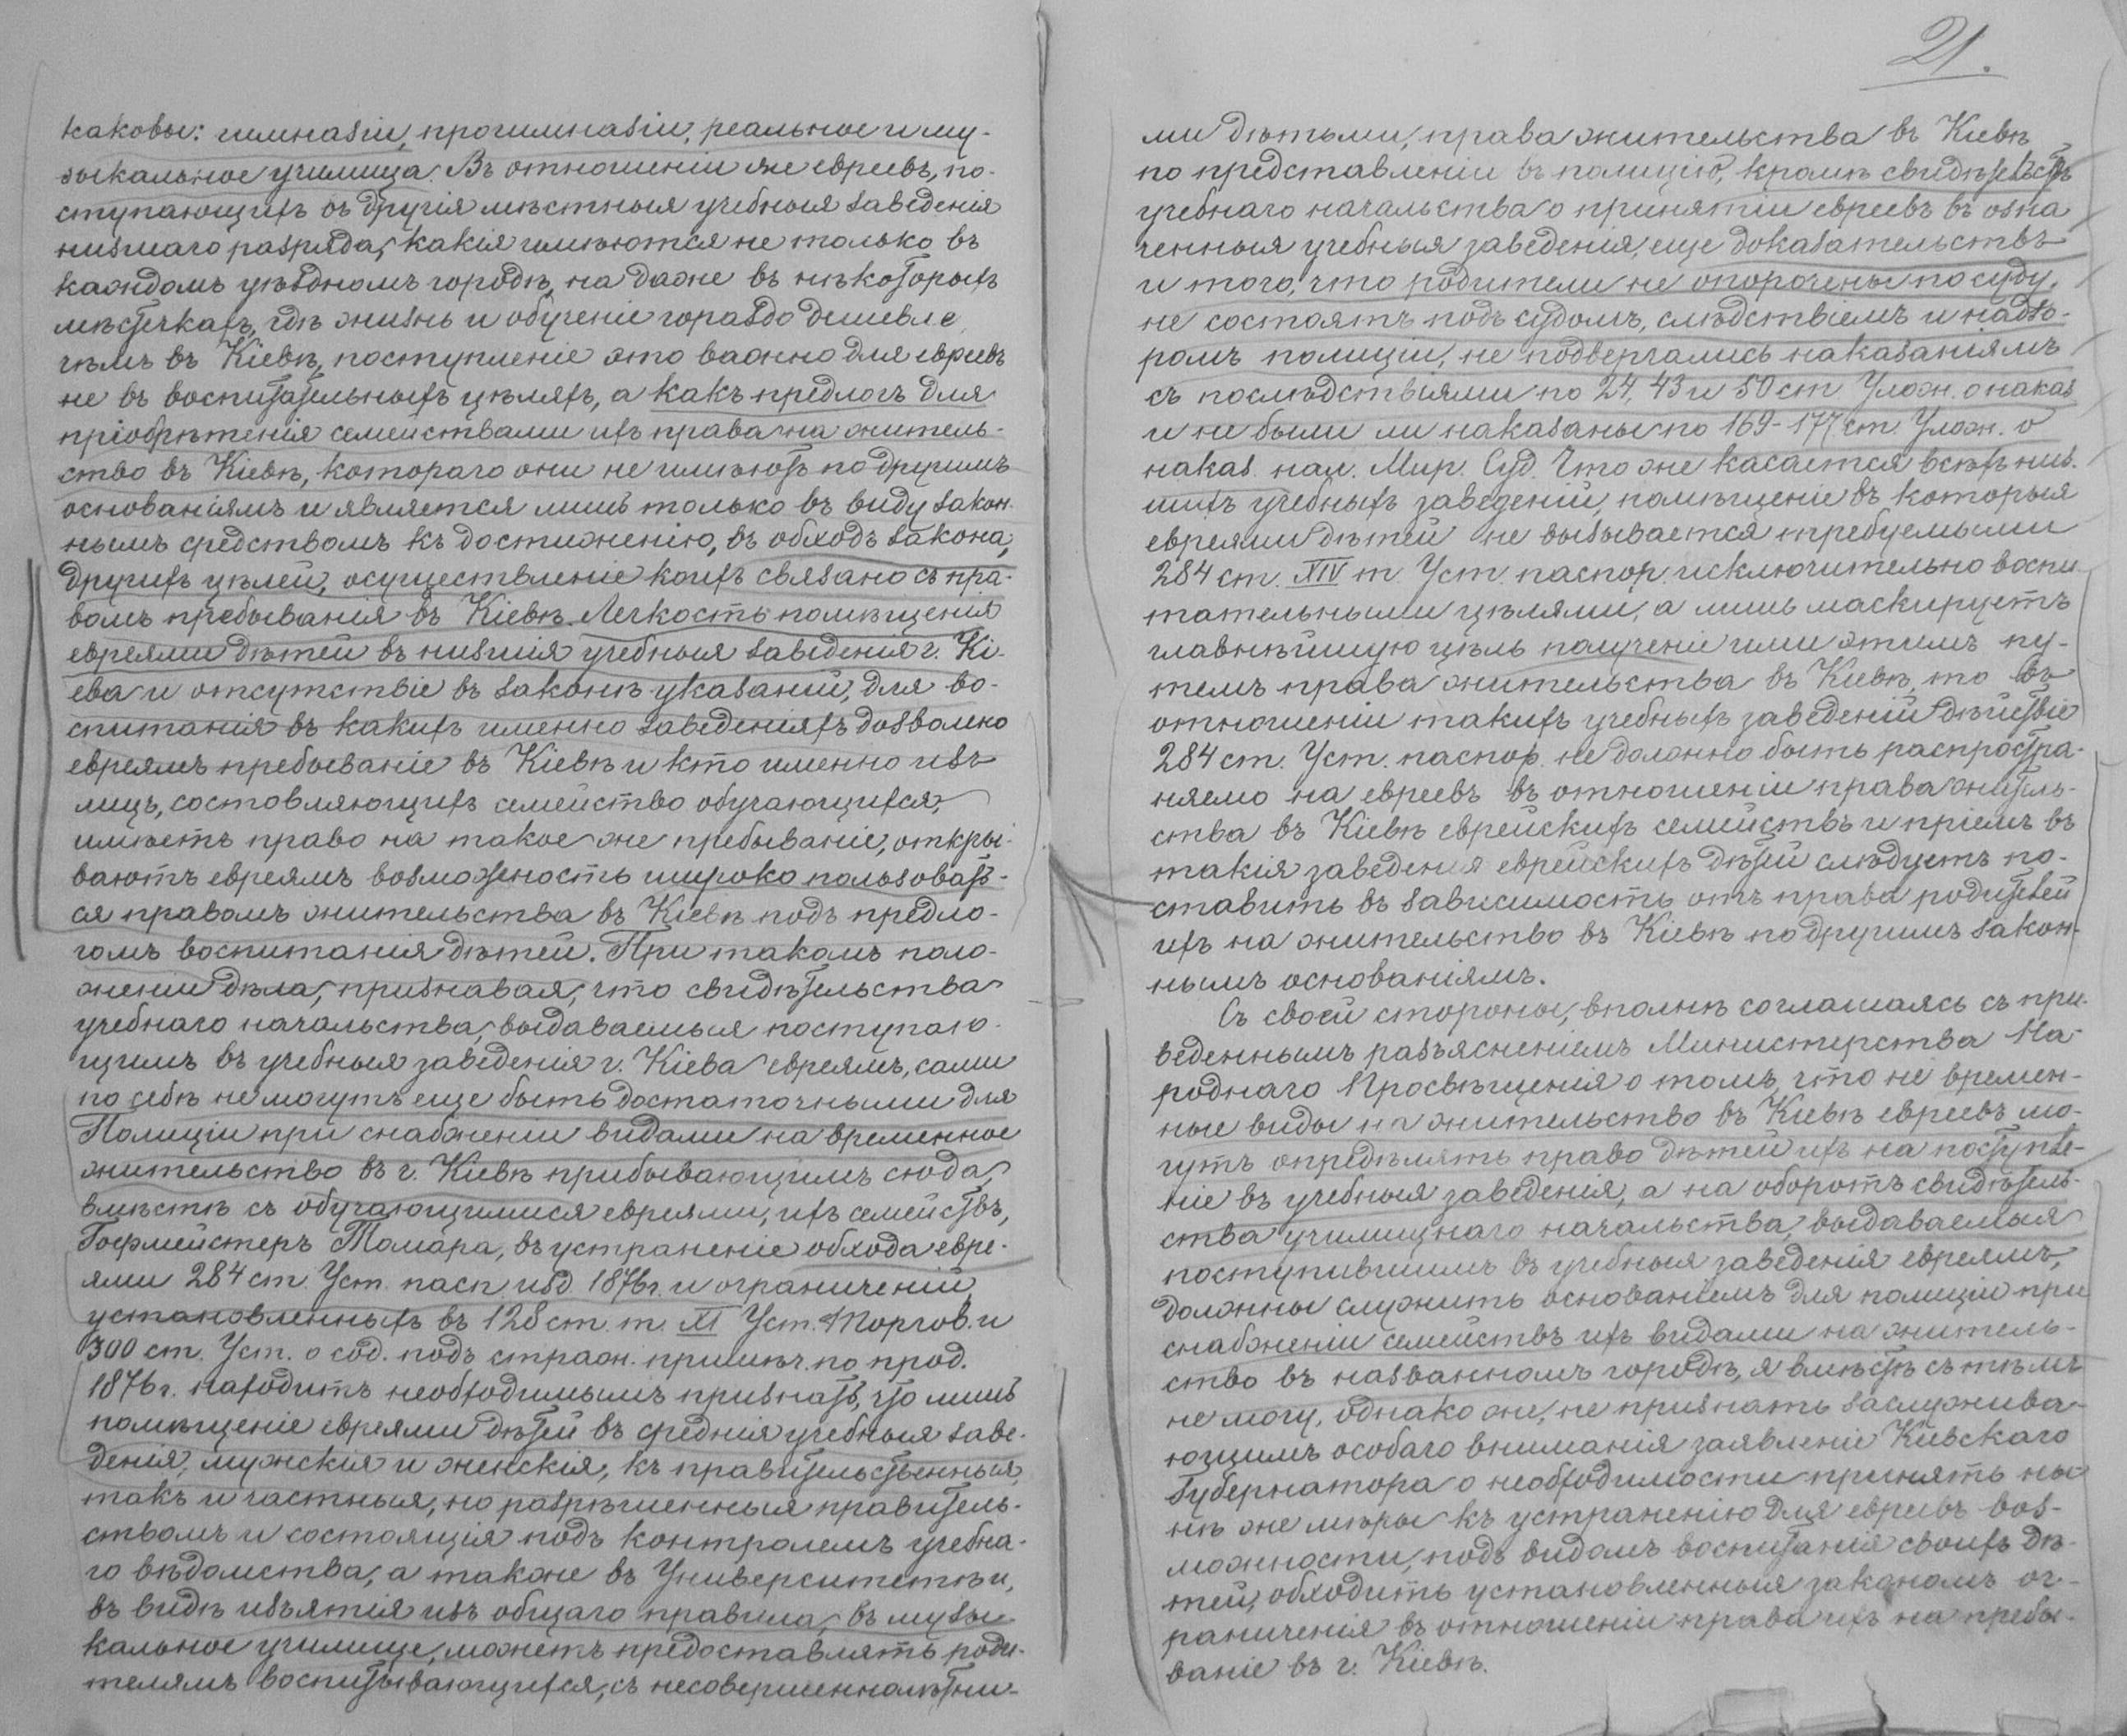 каковы: гимназіи, прогимназіи, реальное и му-
зыкальное училища. Въ отношеніи же евреевъ, по-
ступающихъ въ другія мѣстныя учебныя заведенія
низшаго разряда, какія имѣются не только въ
каждомъ уѣздномъ городѣ, на даже въ нѣкоторыхъ
мѣстечкахъ, гдѣ жизнь и обученіе гораздо дешевле
чѣмъ въ Кіевѣ, поступленіе это важно для евреевъ
не въ воспитательныхъ цѣляхъ, а какъ предлогъ для
пріобрѣтенія семействами ихъ права на житель-
ство въ Кіевѣ, котораго они не имѣютъ по другимъ
основаніямъ и является лишь только въ виду закон-
нымъ средствомъ къ достиженію, въ обходъ закона,
другихъ цѣлей, осуществленіе коихъ связано съ пра-
вомъ пребыванія въ Кіевѣ. Легкость помѣщенія
евреями дѣтей въ низшія учебныя заведенія г. Кі-
ева и отсутствіе въ законѣ указаній, для во-
спитанія въ какихъ именно заведеніяхъ дозволено
евреямъ пребываніе въ Кіевѣ и кто именно изъ
лицъ, состовляющихъ семейство обучающихся,
имѣетъ право на такое же пребываніе, откры-
ваютъ евреямъ возможность широко пользовать-
ся правомъ жительства въ Кіевѣ подъ предло-
гомъ воспитанія дѣтей. При такомъ поло-
женіи дѣла, признавая, что свидѣтельства
учебнаго начальства, выдаваемыя поступаю-
щимъ въ учебныя заведенія г. Кіева евреямъ, сами
по себѣ не могутъ еще быть достаточными для
Полиціи при снабженіи видами на временное
жительство въ г. Кіевѣ прибывающимъ сюда,
вмѣстѣ съ обучающимися евреями, ихъ семействъ,
Гофмейстеръ Томара, въ устраненіе обхода евре-
ями 284 ст. Уст. пасп. изд. 1876 г. и ограниченій
установленныхъ въ 128 ст. т. XI Уст. Торгов. и
300 ст. Уст. о сод. подъ страж. примѣч. по прод.
1876 г. находитъ необходимымъ признать, что лишь
помѣщеніе евреями дѣтей въ среднія учебныя заве-
денія, мужскія и женскія, къ правительственныя,
такъ и частныя, но разрѣшенныя правитель-
ствомъ и состоящія подъ контролемъ учебна-
го вѣдомства, а также въ Университетъ и,
въ видѣ изъятія изъ общаго правила, въ музы-
кальное училище, можетъ предоставлять роди-
телямъ воспитывающихся, съ несовершеннолѣтни-
21.
ми дѣтьми, права жительства въ Кіевѣ
по представленіи въ полицію, кромѣ свидѣтельствъ
учебнаго начальства о принятіи евреевъ въ озна-
ченныя учебныя заведенія, еще доказательствъ
и того, что родители не опорочены по суду,
не состоятъ подъ судомъ, слѣдствіемъ и надзо-
ромъ полиціи, не подвергались наказаніямъ
съ послѣдствіями по 24, 43 и 50 ст. Улож. о наказ.
и не были ли наказаны по 169-177 ст. Улож. о
наказ. нал. Мир. Суд. Что же касается всѣхъ низ-
шихъ учебныхъ заведеній, помѣщеніе въ которыя
евреями дѣтей не вызывается требуемыми
284 ст. XIV т. Уст. паспор. исключительно воспи-
тательными цѣлями, а лишь маскируетъ
главнѣйшую цѣль полученіе ими этимъ пу-
темъ права жительства въ Кіевѣ, то въ
отношеніи такихъ учебныхъ заведеній дѣйствіе
284 ст. Уст. паспор. не должно быть распростра-
няемо на евреевъ въ отношеніи права житель-
ства въ Кіевѣ еврейскихъ семействъ и пріемъ въ
такія заведенія еврейскихъ дѣтей слѣдуетъ по-
ставить въ зависимость отъ права родителей
ихъ на жительство въ Кіевѣ по другимъ закон-
нымъ основаніямъ.
Съ своей стороны, вполнѣ соглашаясь съ при-
веденнымъ разъясненіемъ Министерства На-
роднаго Просвѣщенія о томъ, что не времен-
ные виды на жительство въ Кіевѣ евреевъ мо-
гутъ опредѣлять право дѣтей ихъ на поступле-
ніе въ учебныя заведенія, а на оборотъ свидѣтель-
ства училищнаго начальства, выдаваемыя
поступившимъ въ учебныя заведенія евреямъ,
должны служить основаніемъ для полиціи при
снабженіи семействъ ихъ видами на житель-
ство въ названномъ городѣ, я вмѣстѣ съ тѣмъ
не могу, однако же, не признать заслужива-
ющимъ особаго вниманія заявленіе Кіевскаго
Губернатора о необходимости принять ны-
нѣ же мѣры къ устраненію для евреевъ воз-
можности, подъ видомъ воспитанія своихъ дѣ-
тей, обходить установленныя закономъ ог-
раниченія въ отношеніи права ихъ на пребы-
ваніе въ г. Кіевѣ.